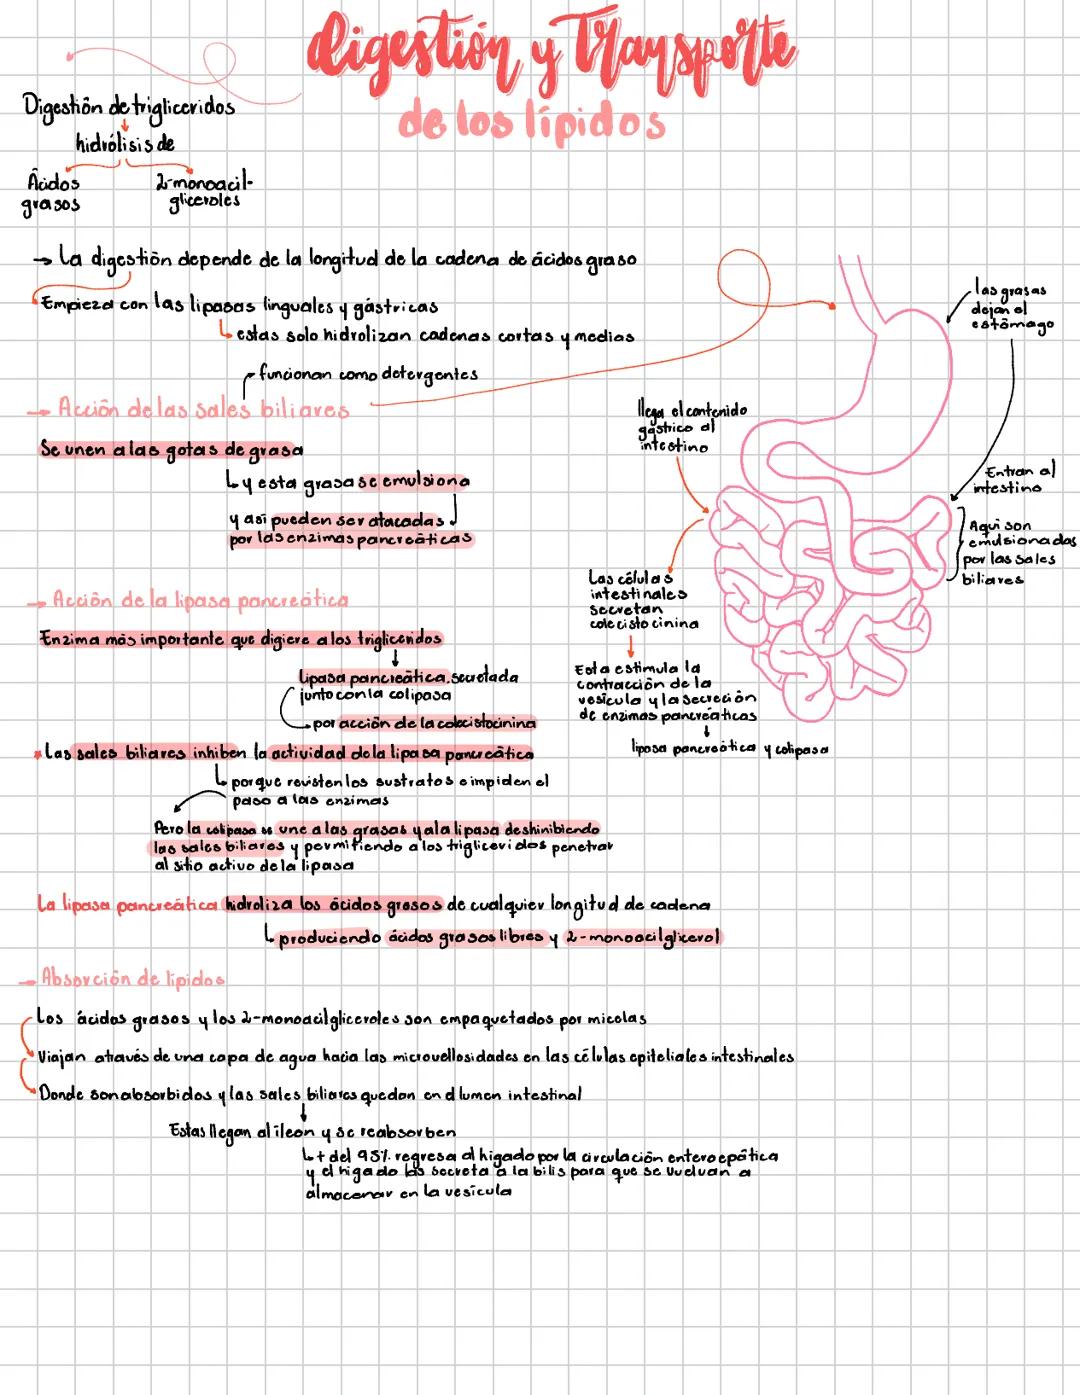 digestión y Transporte
de los lípidos
Digestión de trigliceridos
hidrólisis de
Ácidos
grasos
2-monoacil-
gliceroles
→ La digestión depende de la longitud de la cadena de ácidos graso
Empieza con las lipasas linguales y gástricas
estas solo hidrolizan cadenas cortas y medias
funcionan como detergentes
→ Acción de las sales biliares
Se unen a las gotas de grasa
y esta grasa se emulsiona
y así pueden ser atacadas
por las enzimas pancreáticas
las grasas
dejan el
estómago
llega el contenido
gástrico al
intestino
Entran al
intestino
Aquí son
emulsionadas
por las sales
biliares
Las células
intestinales
secretan
colecistocinina
Esta estimula la
contracción de la
vesícula y la secreción
de enzimas pancreáticas
lipasa pancreática y colipasa
→ Acción de la lipasa pancreática
Enzima más importante que digiere a los triglicéridos
lipasa pancreática, secretada
junto con la colipasa
por acción de la colecistocinina
*Las sales biliares inhiben la actividad de la lipasa pancreática
porque revisten los sustratos e impiden el
paso a las enzimas
Pero la colipasa se une a las grasas y a la lipasa deshinibiendo
las sales biliares y permitiendo a los trigliceridos penetrar
al sitio activo de la lipasa
La lipasa pancreática hidroliza los ácidos grasos de cualquier longitud de cadena
produciendo ácidos grasos libres y 2-monoacilglicerol
→ Absorción de lípidos
Los ácidos grasos y los 2-monoacilgliceroles son empaquetados por micelas
Viajan através de una capa de agua hacia las microvellosidades en las células epiteliales intestinales
Donde son absorbidos y las sales biliares quedan en el lumen intestinal
Estas llegan al íleon y se reabsorben
+ del 95% regresa al higado por la circulación enteroepática
y el higado las secreta a la bilis para que se vuelvan a
almacenar en la vesícula